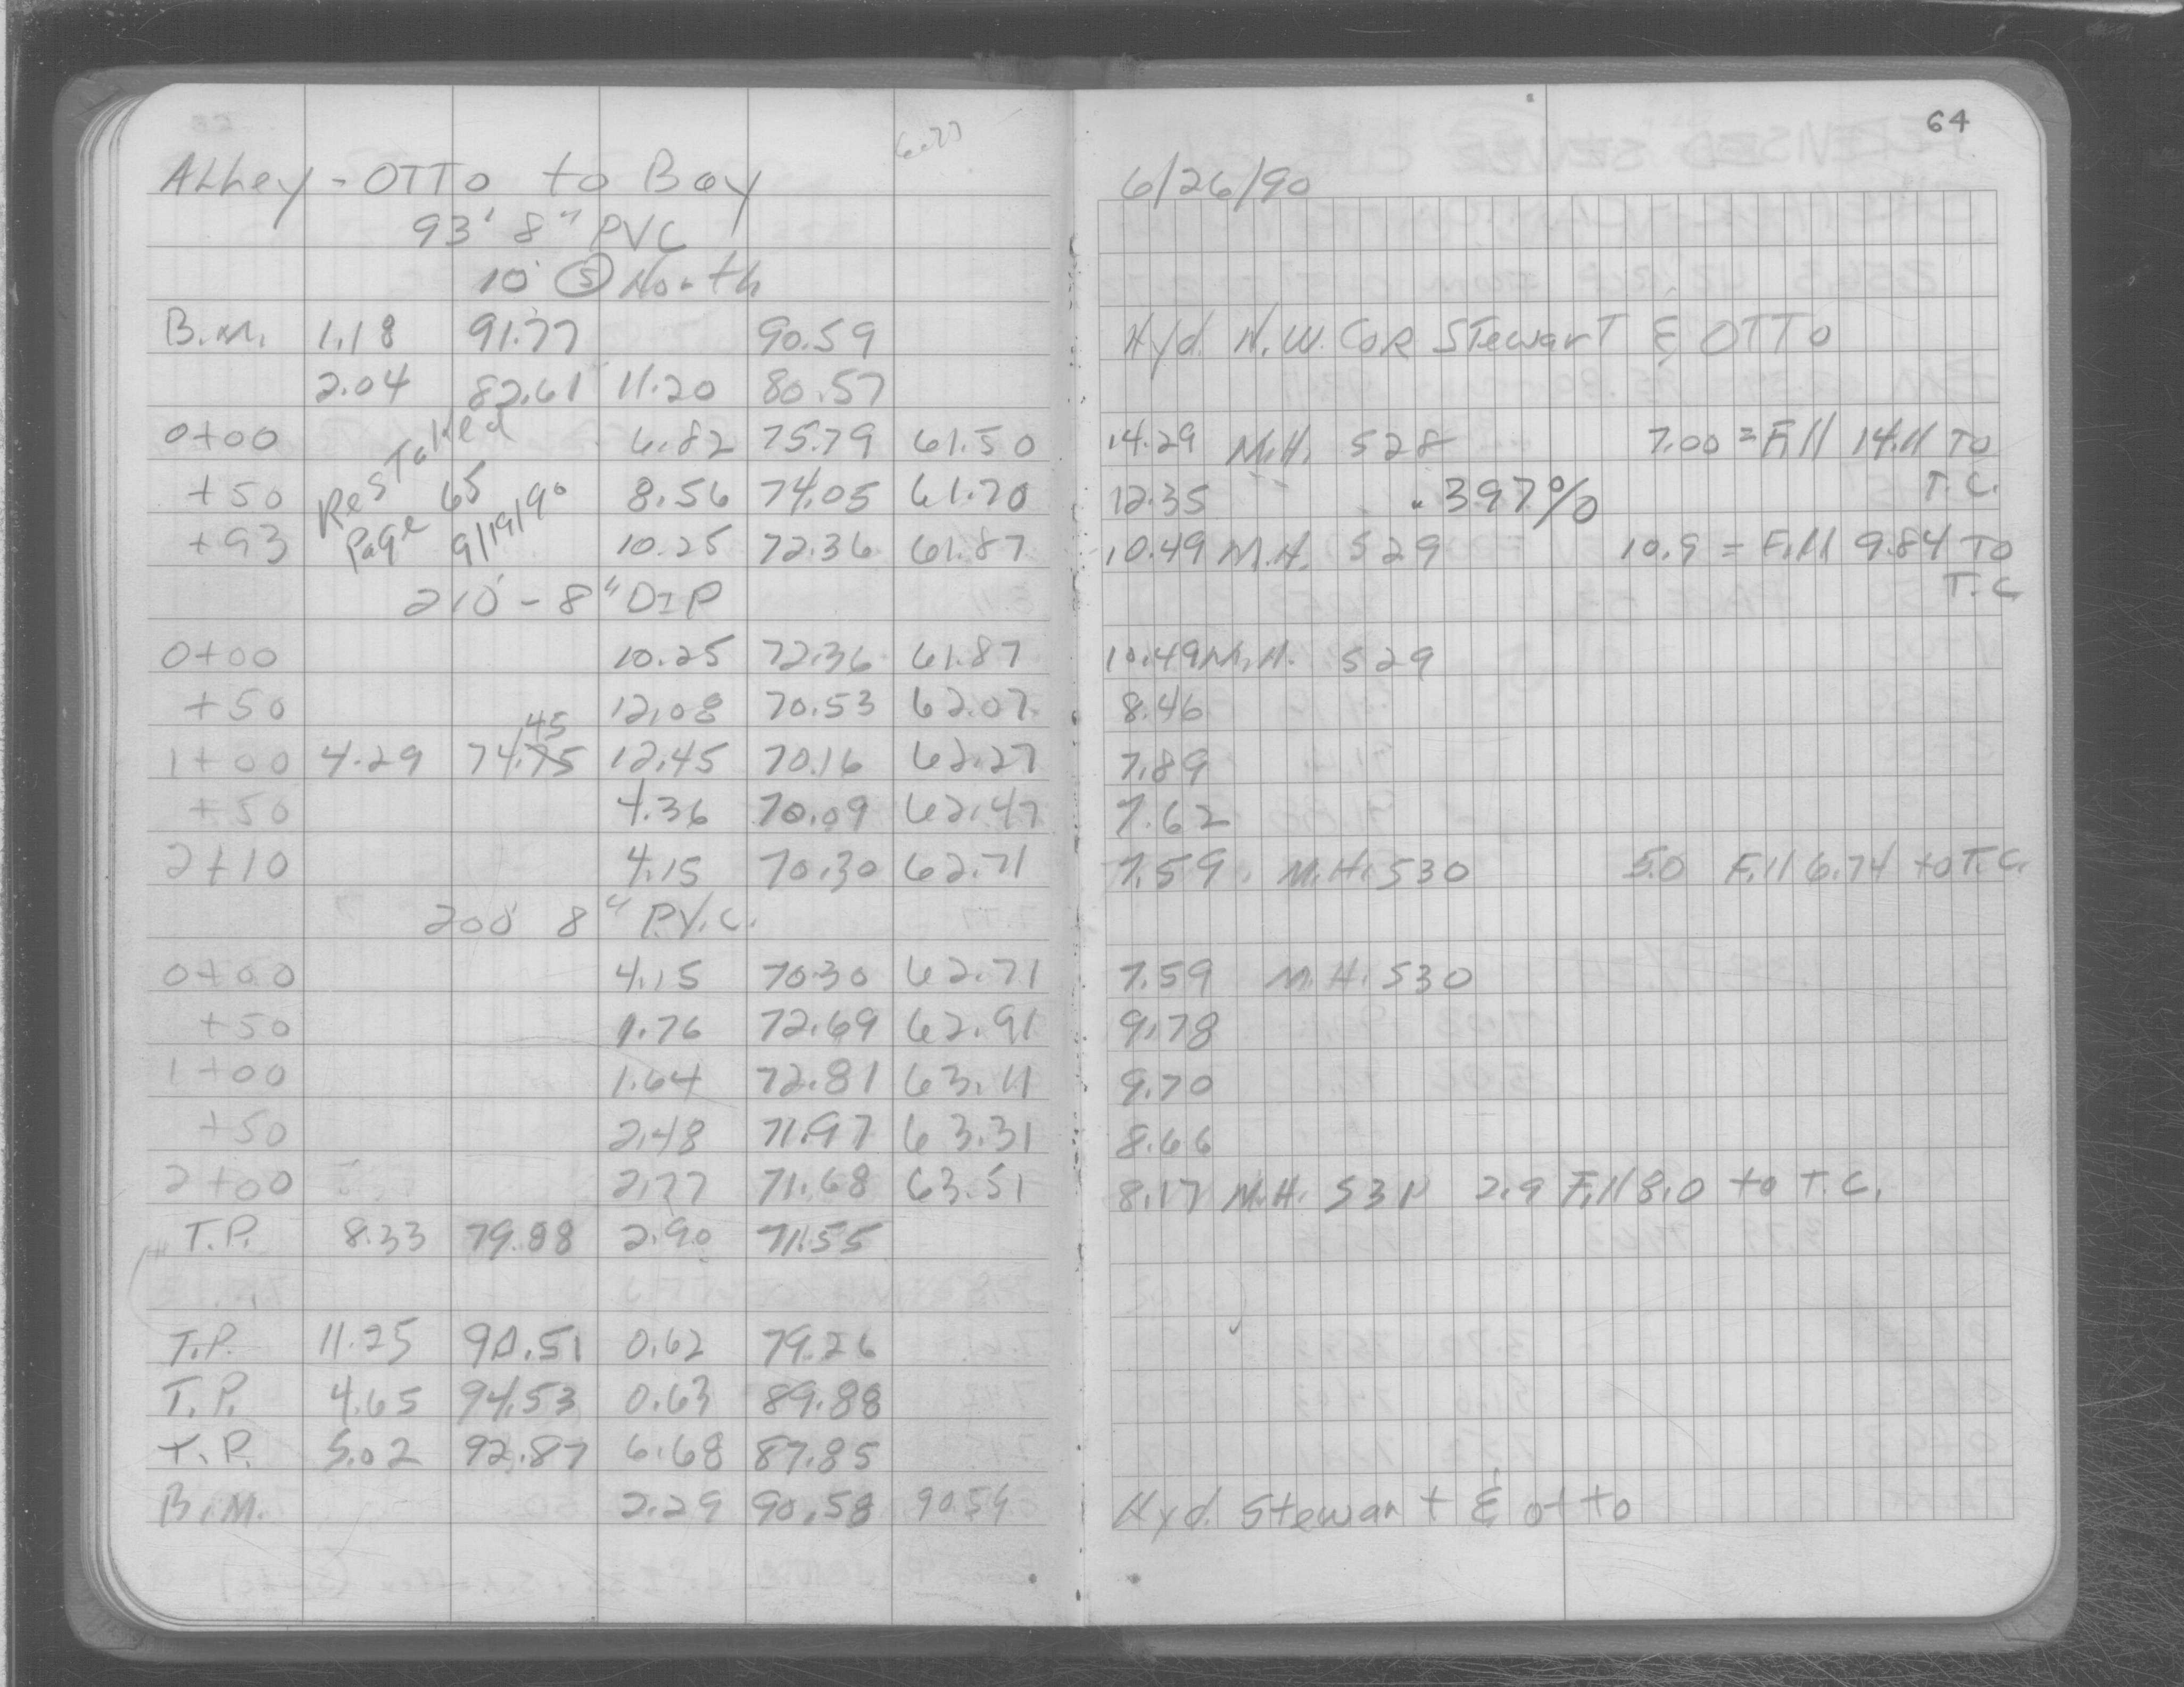 64
Abbey - OTTO to Bay 6/26/90
93' 8" PVC
10' (S) North
B.M. 1.18 91.77 90.59 Hyd. N.W. COR STewarT & OTTO
2.04 82.61 11.20 80.57
0+00 6.82 75.79 61.50 14.29 M.H. S28 7.00 = Fill 14.11 TO T.C.
+50 8.56 74.05 61.70 12.35 .397%
+93 10.25 72.36 61.87 10.49 M.H. S29 10.9 = Fill 9.84 TO T.C.
ResTaked
Page 65
9/19/90
210' - 8" DIP
0+00 10.25 72.36 61.87 10.49 M.H. S29
+50 12.08 70.53 62.07 8.46
45
1+00 4.29 74.75 12.45 70.16 62.27 7.89
+50 4.36 70.09 62.47 7.62
2+10 4.15 70.30 62.71 7.59 M.H. S30 5.0 Fill 6.74 to T.C.
200' 8" P.V.C.
0+00 4.15 70.30 62.71 7.59 M.H. S30
+50 1.76 72.69 62.91 9.78
1+00 1.64 72.81 63.11 9.70
+50 2.48 71.97 63.31 8.66
2+00 2.77 71.68 63.51 8.17 M.H. S31 2.9 Fill 8.0 to T.C.
T.P. 8.33 79.88 2.90 71.55
T.P. 11.25 90.51 0.62 79.26
T.P. 4.65 94.53 0.63 89.88
T.P. 5.02 92.87 6.68 87.85
B.M. 2.29 90.58 90.59 Hyd. Stewart & otto